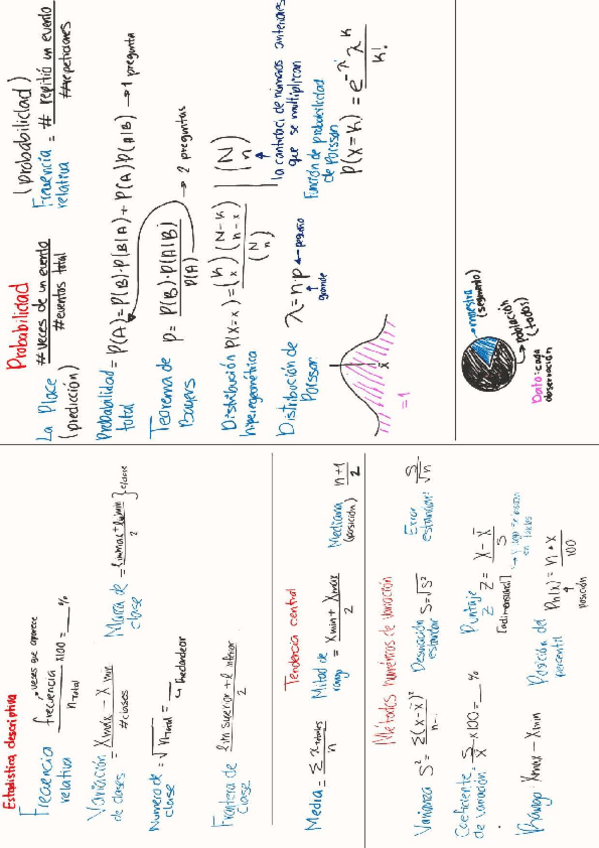 Estadística descriptiva
Frecuencia relativa = frecuencia / n total x100 = __ %
veces que aparece
Variación de clases = Xmax - Xmin / #clases
Marca de clase = lim max + lim min / 2 } clase
Numero de clase = √n total = __
↳ redondear
Frontera de clase lim superior + l inferior / 2
Tendencia central
Media = Σ x totales / n
Mitad de rango = Xmin + Xmax / 2
Mediana (posición) n+1 / 2
Métodos numéricos de variación
Varianza S² = Σ(x-x̄)² / n-1
Desviación estandar S=√S²
Error estandar: S / √n
Coeficiente de variación: S / X̄ x100 = __ %
Puntaje Z Z = X - X̄ / S
[adimensional]
en todos
Rango: Xmax - Xmin
Posición del percentil Pn(x) = n • x / 100
↑ posición
Probabilidad
La Place (predicción) # veces de un evento / # eventos total
(probabilidad)
Frecuencia relativa = # repitió un evento / # repeticiones
Probabilidad total = P(A) = P(B)·P(B|A) + P(A)P(A|B) → 1 pregunta
Teorema de Bayes P = P(B)·P(A|B) / P(A) → 2 preguntas
Distribución hipergeométrica P(X=x) = (K x)(N-K n-x) / (N n) | (N n)
la cantidad de números anteriores que se multiplican
Distribución de Poisson λ = n·p ← pequeño
↑ grande
Función de probabilidad de Poisson
P(X=k) = e^-λ λ^k / k!
x̄
=1
→ muestra (segmento)
→ población (todos)
Dato: caga observación